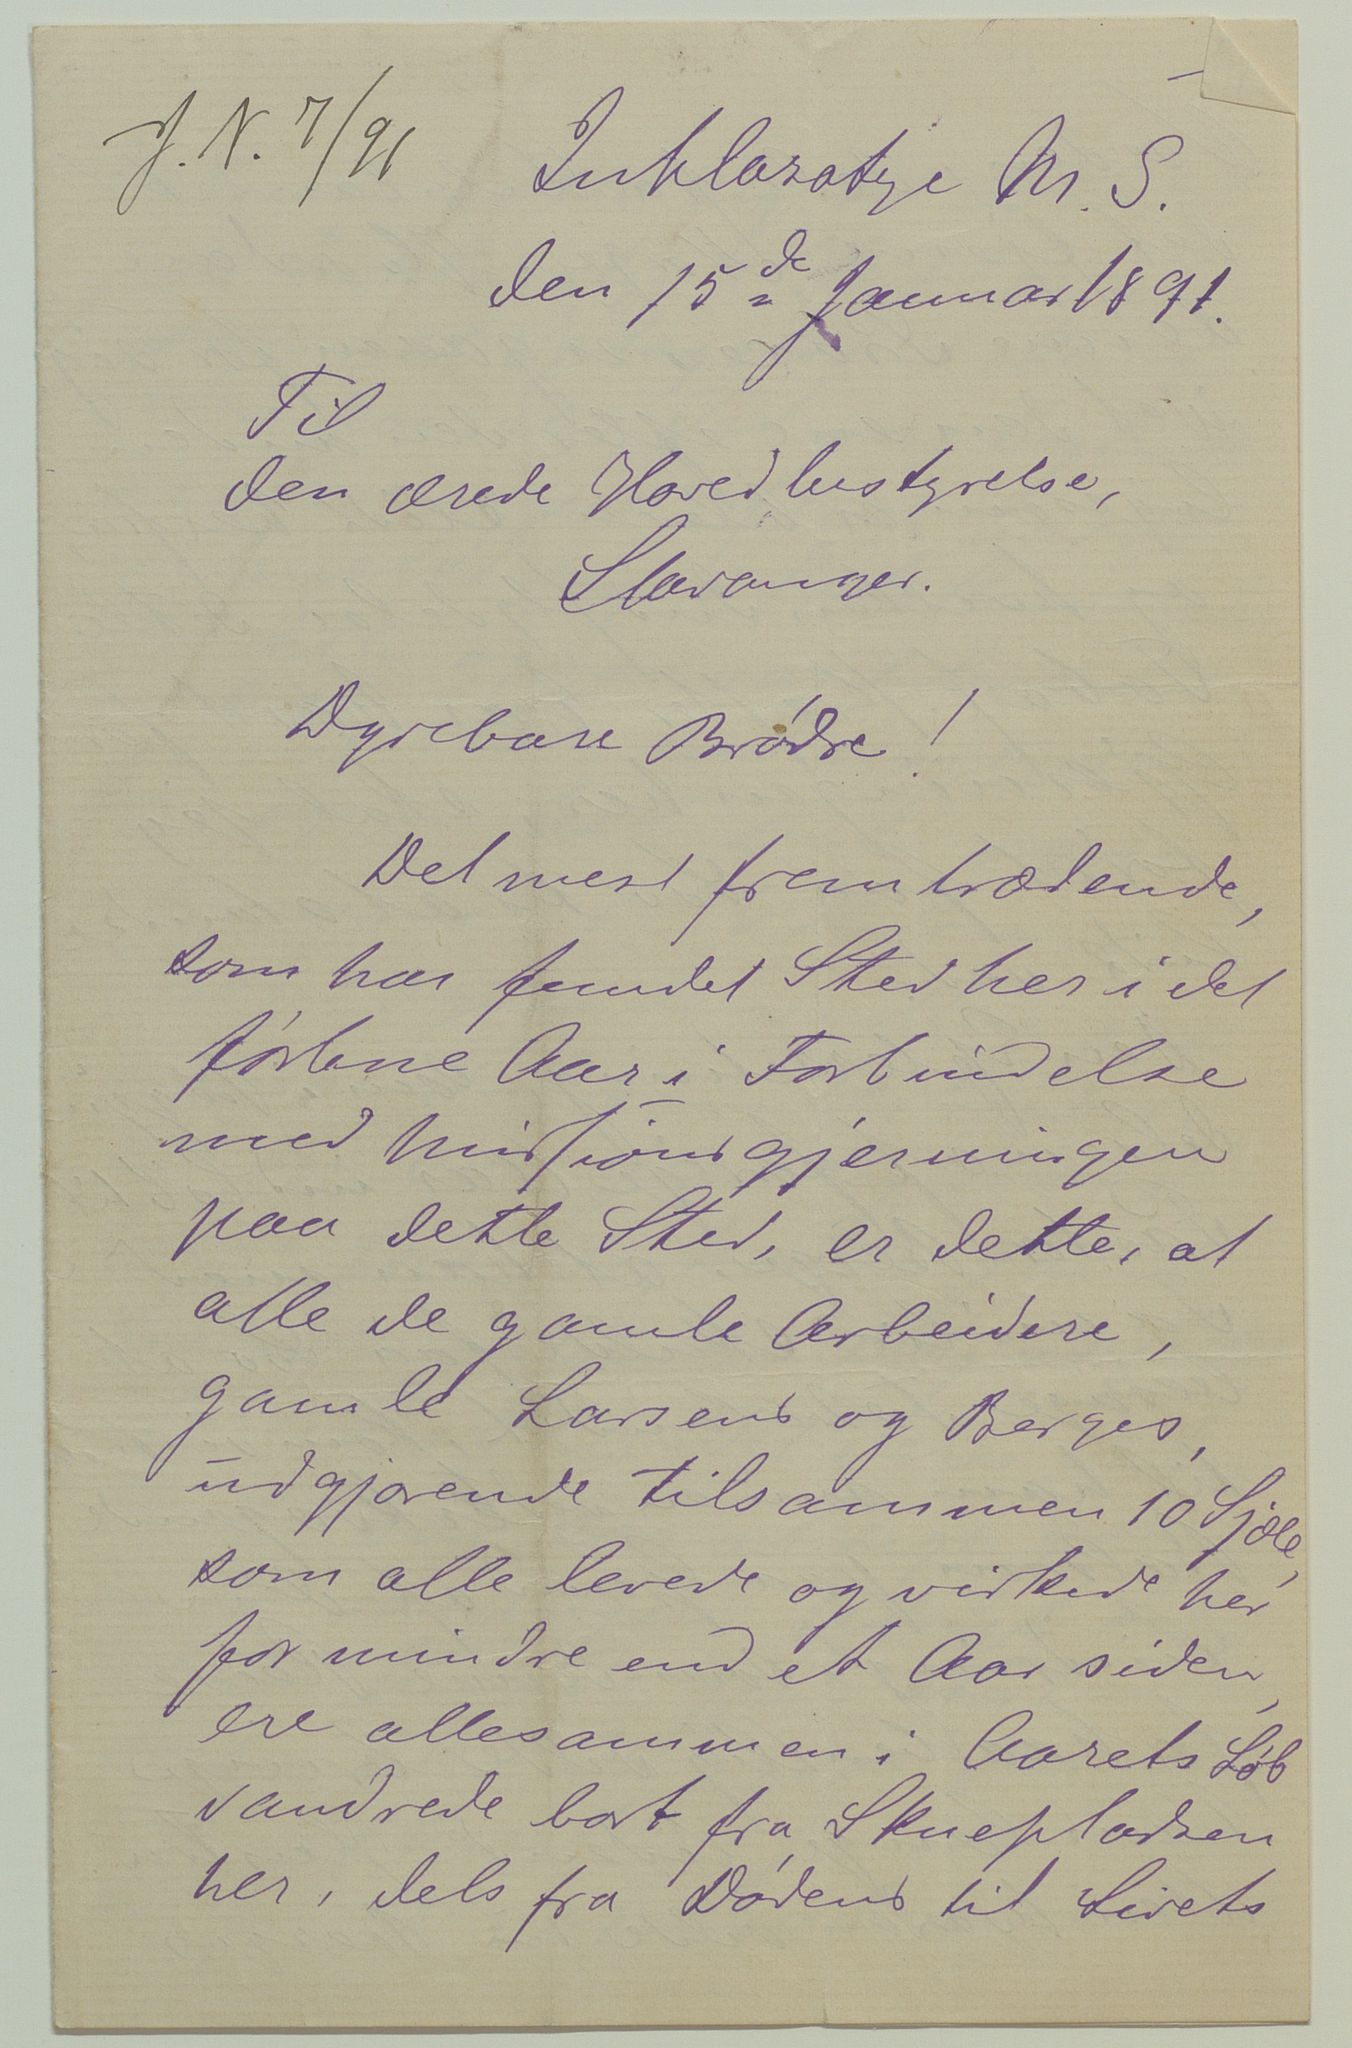 J. N. 7/91
Inhlazatye M. S.
den 15de Januar 1891.
Til
den ærede Hovedbestyrelse,
Stavanger.
Dyrebare Brødre!
Det mest fremtrædende,
som har fundet Sted her i det
førløbne Aar i Forbindelse
med Missionsgjerningen
paa dette Sted, er dette, at
alle de gamle Arbeidere,
gamle Larsens og Berges,
udgjørende tilsammen 10 Sjæle,
som alle levede og virkede her
for mindre end et Aar siden,
ere allesammen i Aarets Løb
vandrede bort fra Skuepladsen
her, dels fra Dødens til Livets